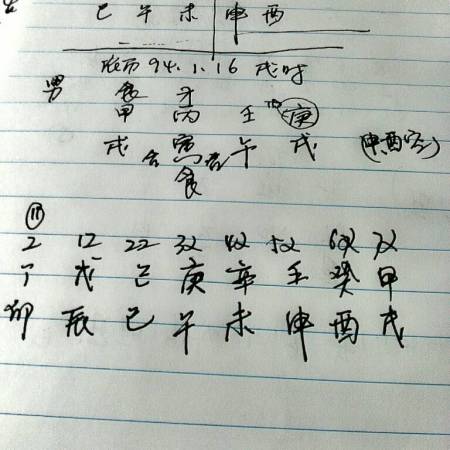 巳 午 未 申 酉
农历94.1.16 戌时
男 食 才
甲 丙 壬 庚
戌 合 寅 合 午 戌 (申酉空)
食
11
2 12 22 32 42 52 62 72
丁 戊 己 庚 辛 壬 癸 甲
卯 辰 巳 午 未 申 酉 戌